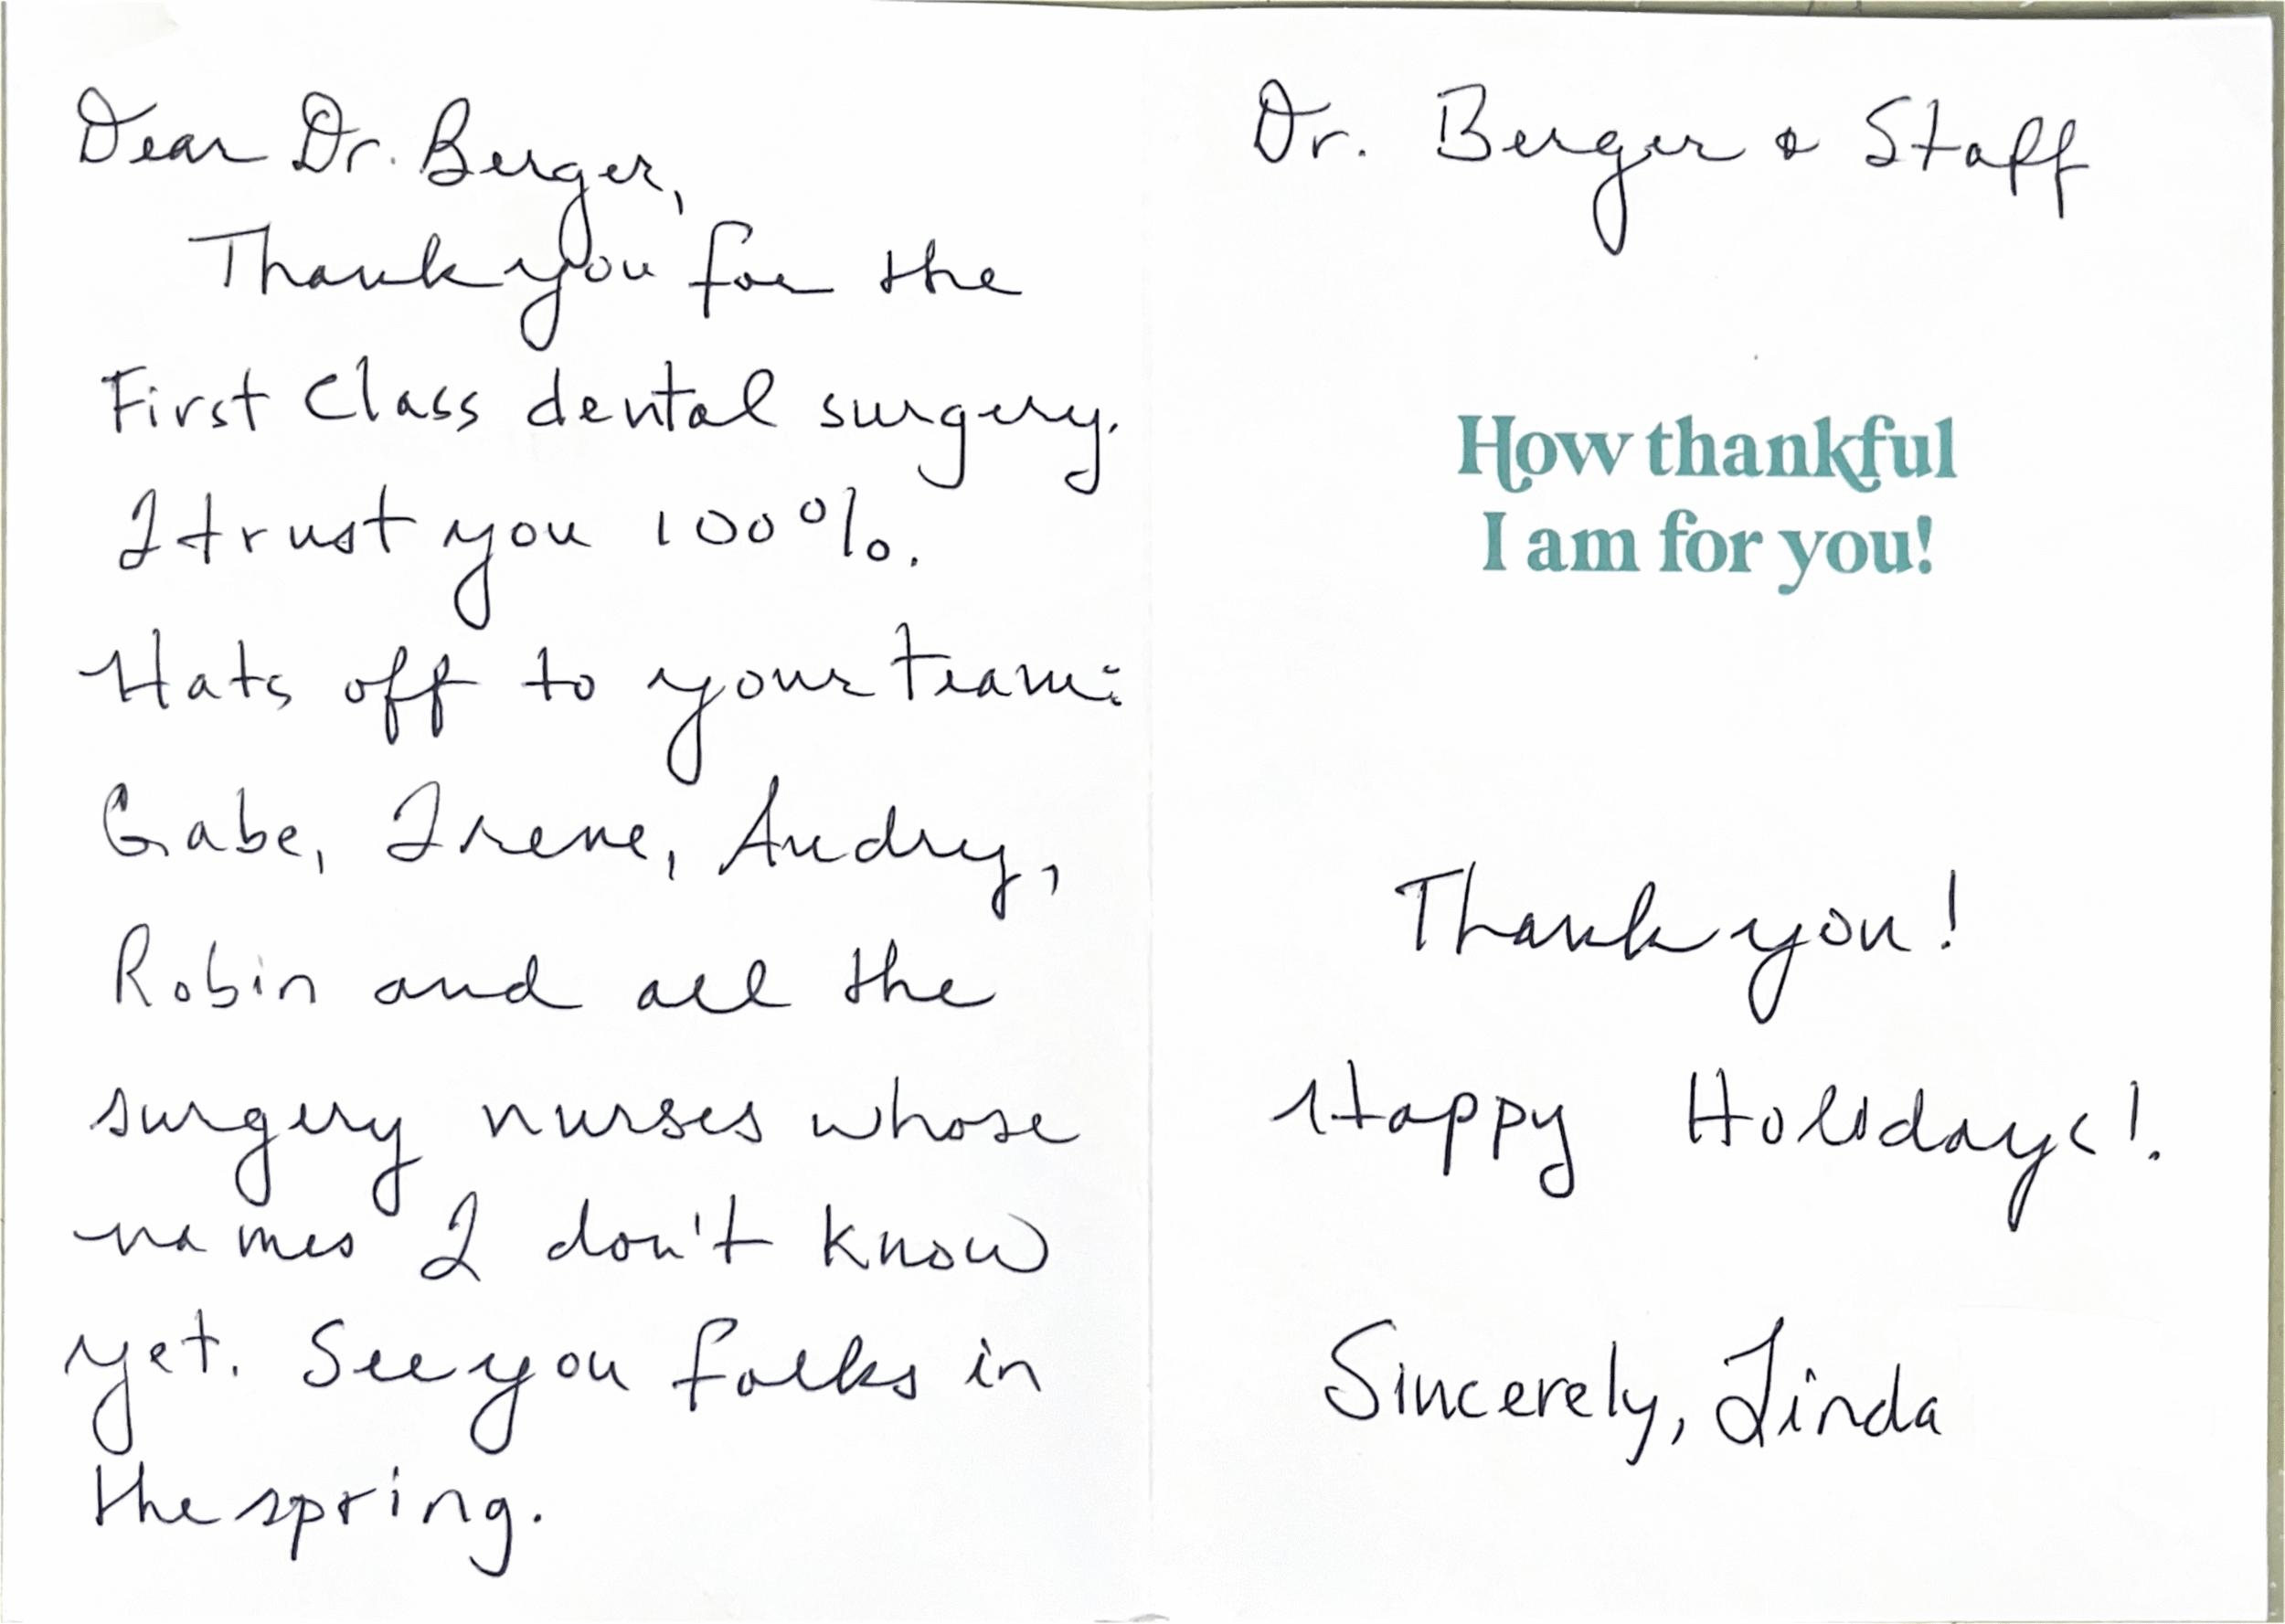 Dear Dr. Berger,
Thank you for the
First Class dental surgery.
I trust you 100%.
Hats off to your team:
Gabe, Irene, Audry,
Robin and all the
surgery nurses whose
names I don't know
yet. See you folks in
the spring.
Dr. Berger & Staff
How thankful
I am for you!
Thank you!
Happy Holidays!
Sincerely, Linda